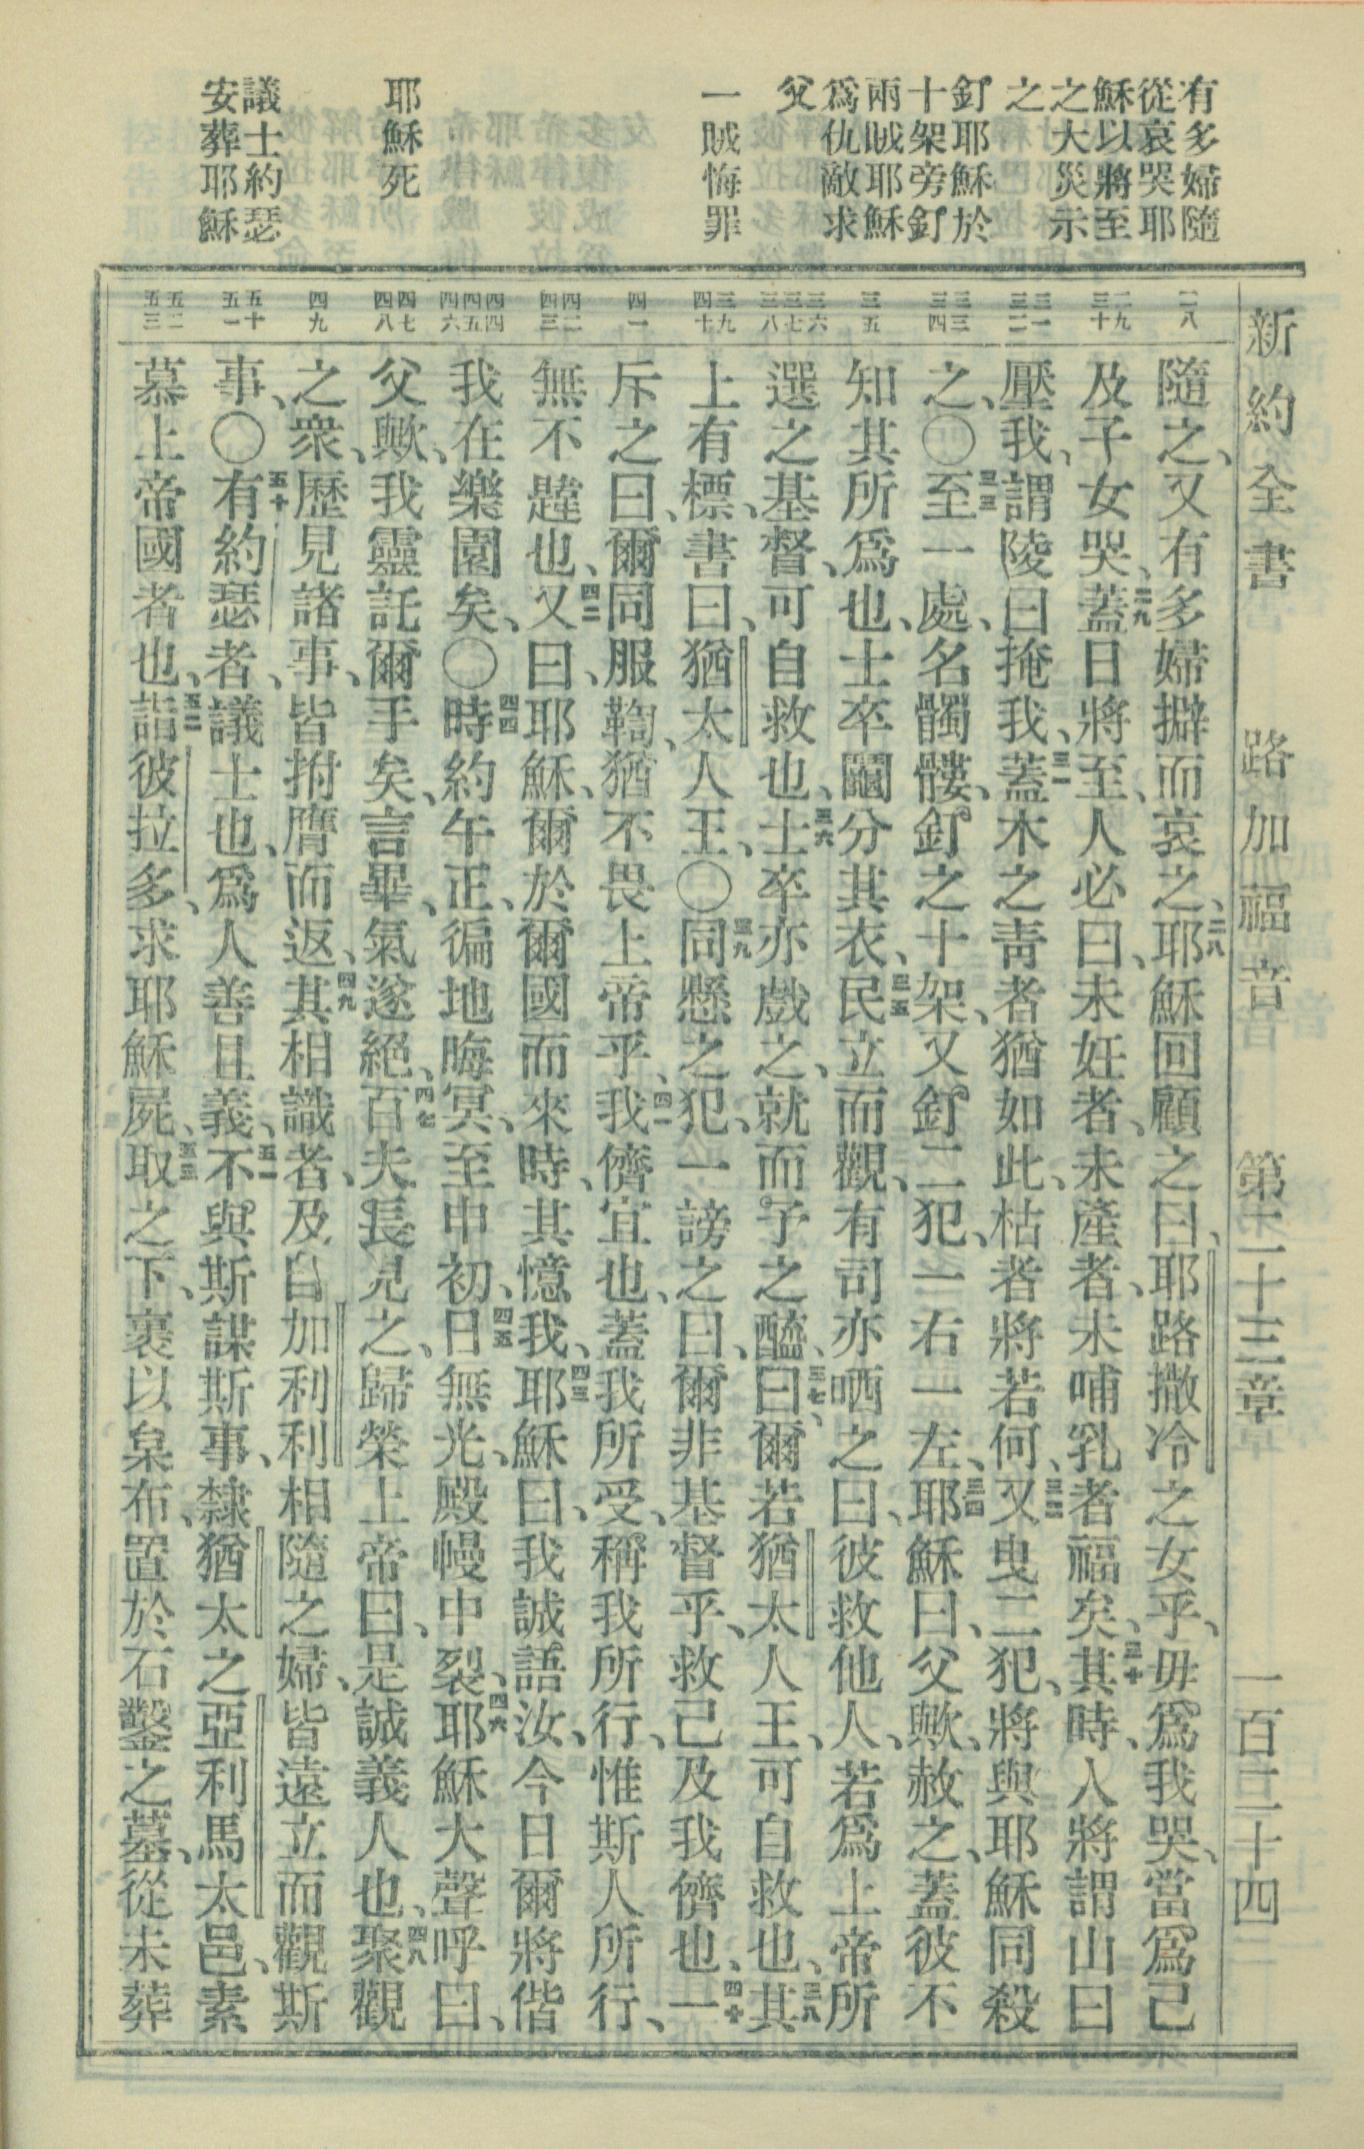 新約全書 路加福音 第二十三章 一百二十四
有多婦隨
從哀哭耶
穌以將至
之大災示
之
釘耶穌於
十架旁釘
兩賊耶穌
爲仇敵求
父
一賊悔罪
耶穌死
議士約瑟
安葬耶穌
二八
二九 三十
三一 三二
三三 三四
三五
三六 三七 三八
三九 四十
四一
四二 四三
四四 四五 四六
四七 四八
四九
五十 五一
五二 五三
隨之、又有多婦擗而哀之、二八耶穌回顧之曰、耶路撒冷之女乎、毋爲我哭、當爲己
及子女哭、二九蓋日將至、人必曰、未妊者、未產者、未哺乳者福矣、三十其時、人將謂山曰
壓我、謂陵曰掩我、三一蓋木之靑者猶如此、枯者將若何、三二又曳二犯、將與耶穌同殺
之、〇三三至一處、名髑髏、釘之十架、又釘二犯、一右一左、三四耶穌曰、父歟、赦之、蓋彼不
知其所爲也、士卒鬮分其衣、三五民立而觀、有司亦哂之曰、彼救他人、若爲上帝所
選之基督、可自救也、三六士卒亦戲之、就而予之醯、三七曰、爾若猶太人王、可自救也、三八其
上有標、書曰、猶太人王、〇三九同懸之犯、一謗之曰、爾非基督乎、救己及我儕也、四十一
斥之曰、爾同服鞫、猶不畏上帝乎、四一我儕宜也、蓋我所受、稱我所行、惟斯人所行、
無不韙也、四二又曰、耶穌、爾於爾國而來時、其憶我、四三耶穌曰、我誠語汝、今日爾將偕
我在樂園矣、〇四四時約午正、徧地晦冥、至申初、四五日無光、殿幔中裂、四六耶穌大聲呼曰、
父歟、我靈託爾手矣、言畢、氣遂絕、四七百夫長見之、歸榮上帝曰、是誠義人也、四八聚觀
之衆、歷見諸事、皆拊膺而返、四九其相識者、及自加利利相隨之婦、皆遠立而觀斯
事、〇五十有約瑟者、議士也、爲人善且義、五一不與斯謀斯事、隸猶太之亞利馬太邑、素
慕上帝國者也、五二詣彼拉多、求耶穌屍、五三取之下、裹以枲布、置於石鑿之墓、從未葬